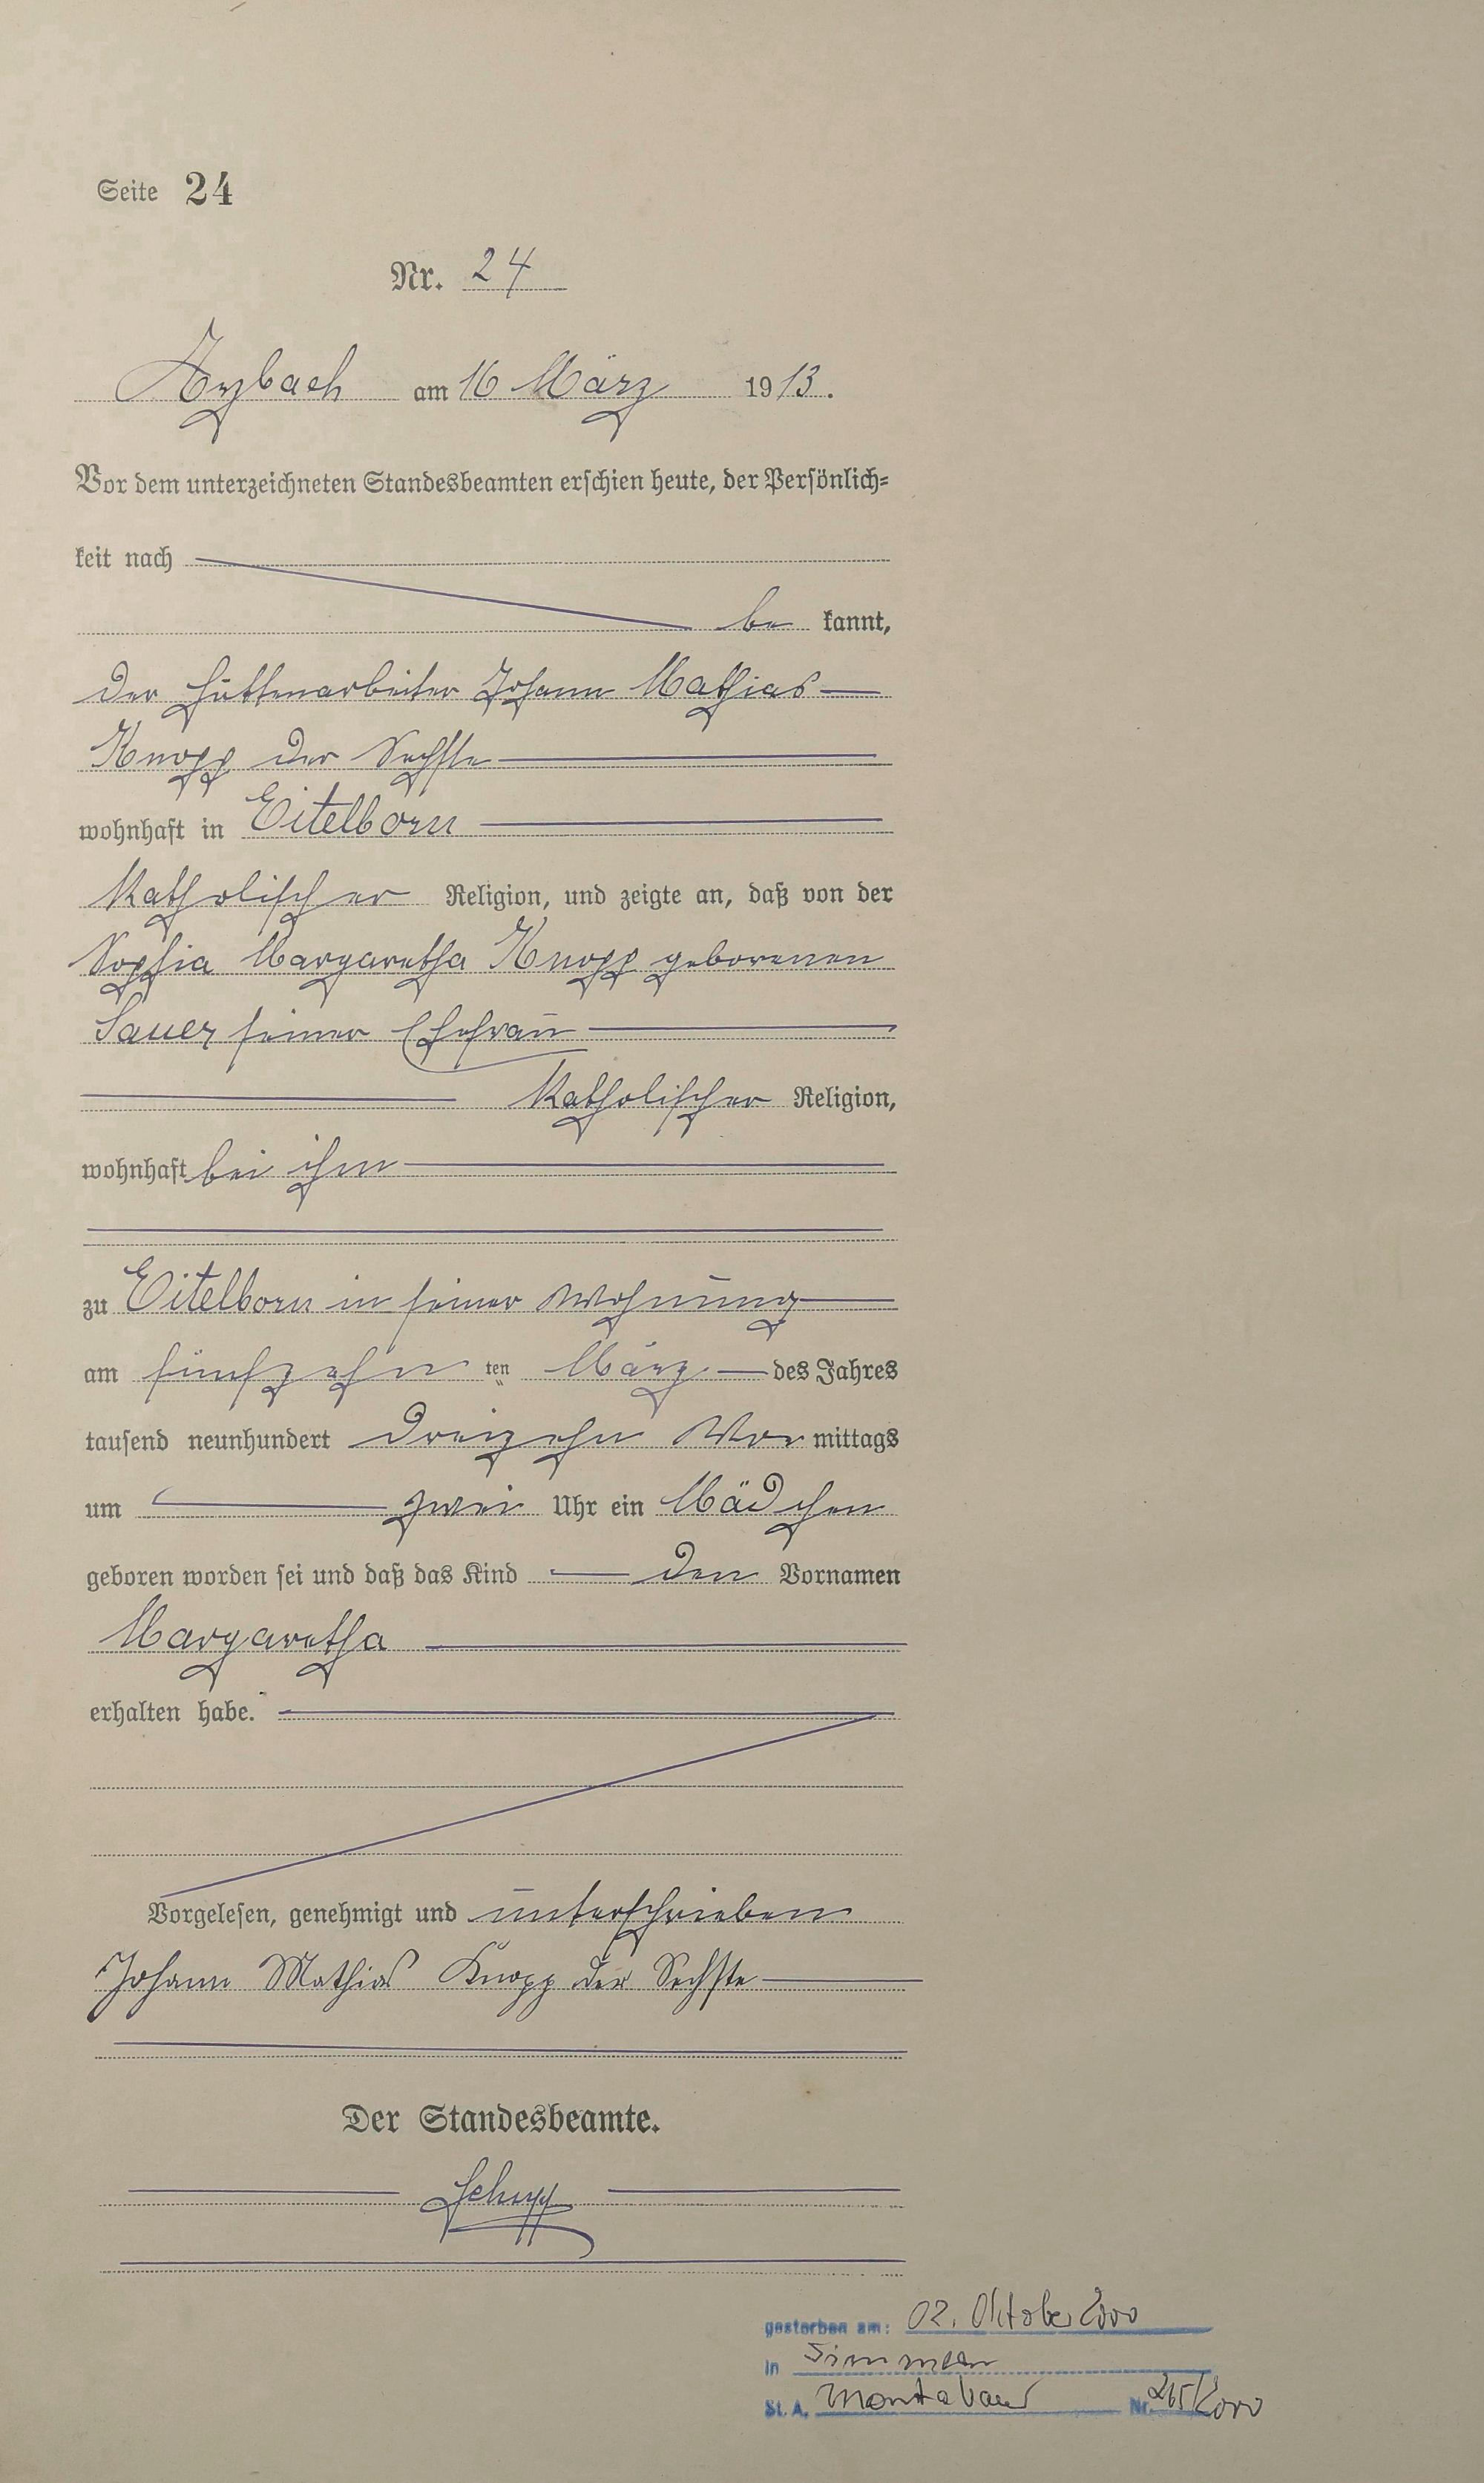 Seite 24
Nr. 24
Arzbach am 16 März 1913.
Vor dem unterzeichneten Standesbeamten erschien heute, der Persönlich=
keit nach
be kannt,
der Hüttenarbeiter Johann Mathias
Knopp der Sechste
wohnhaft in Eitelborn
katholischer Religion, und zeigte an, daß von der
Sophia Margaretha Knopp geborenen
Sauer seiner Ehefrau
katholischer Religion,
wohnhaft bei ihm
zu Eitelborn in seiner Wohnung
am fünfzehn ten März des Jahres
tausend neunhundert dreizehn Vor mittags
um zwei Uhr ein Mädchen
geboren worden sei und daß das Kind den Vornamen
Margaretha
erhalten habe.
Vorgelesen, genehmigt und unterschrieben
Johann Mathias Knopp der Sechste
Der Standesbeamte.
Schupp
gestorben am: 02. Oktober 2000
in Simmern
St. A. Montabaur Nr. 265/2000